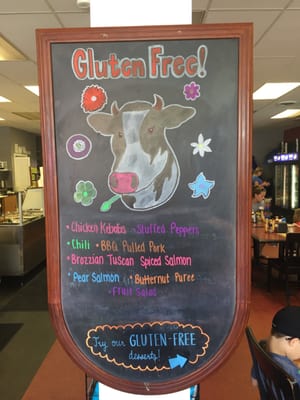 Gluten Free!
• Chicken Kebobs • Stuffed Peppers
• Chili • BBQ Pulled Pork
• Brozzian Tuscan Spiced Salmon
• Pear Salmon • Butternut Puree
• Fruit Salad
Try our GLUTEN-FREE
desserts!